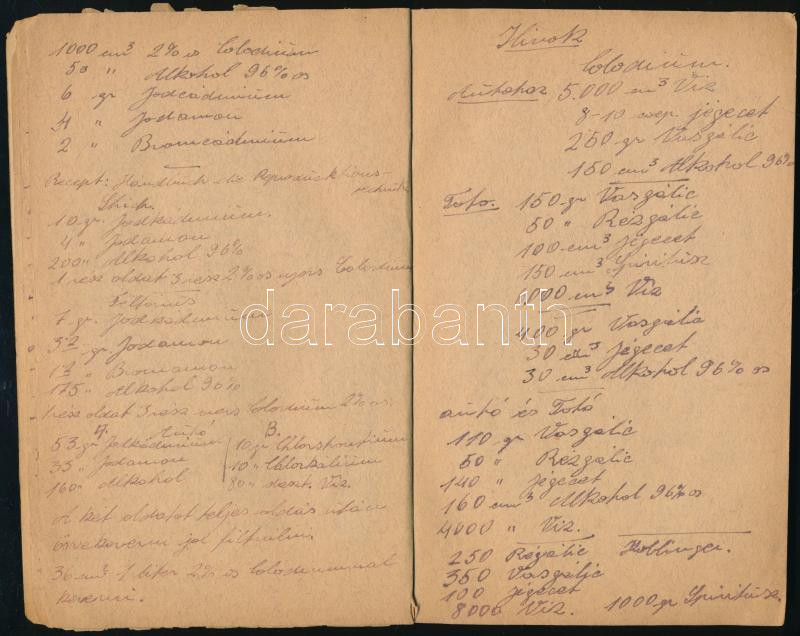 1000 cm³ 2%os Colodium
50 " Alkohol 96%os
6 gr Jodcádmium
4 " Jodamon
2 " Bromcádmium
Recept: Handbuch die Reproduktions-
technik
10 gr. Jodkadmium.
4 " Jodamon
200 " Alkohol 96%
1 rész oldat 3 rész 2%os nyers Colodium
7 gr. Jodkadmium
3.2 gr Jodamon
1.2 " Bromamon
175 " Alkohol 96%
1 rész oldat 3 rész nyers Colodium 2%os.
A. Autó B.
53 gr Jodkádmium 10 gr Chlorstrontium
35 " Jodamon 10 " Chlorkálcium
160 " Alkohol 80 " deszt. Viz.
A két oldatot teljes oldás után
összekeverni jól filtrálni.
36 cm³ 1 liter 2%os Colodiummal
keverni.
Hivok
Colodium.
Autohoz 5.000 cm³ Viz
8-10 jégecet
250 gr Vasgálic
150 cm³ Alkohol 96%
Foto. 150 gr Vasgálic
50 " Rézgálic
100 cm³ jégecet
150 cm³ Spiritusz
Viz
400 gr Vasgálic
30 cm³ jégecet
30 cm³ Alkohol 96%os
autó és Fotó
110 gr Vasgálic
50 " Rézgálic
140 " jégecet
160 cm³ Alkohol 96%os
4000 " Viz.
250 Rézgálic Koblinger.
350 Vasgálic
100 jégecet
8000 Viz. 1000 gr Spiritusz.
darabanth